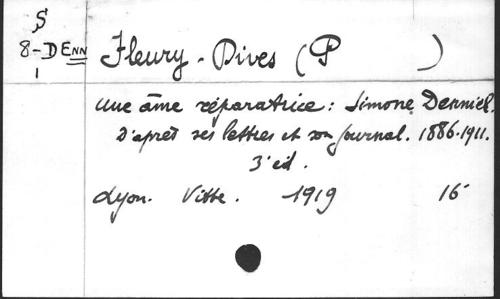 S
8-DENN
1
Fleury-Dives (P )
Une âme réparatrice : Simone Denniel.
D'après ses lettres et son journal. 1886-1911.
3'éd.
Lyon. Vitte. 1919 16°